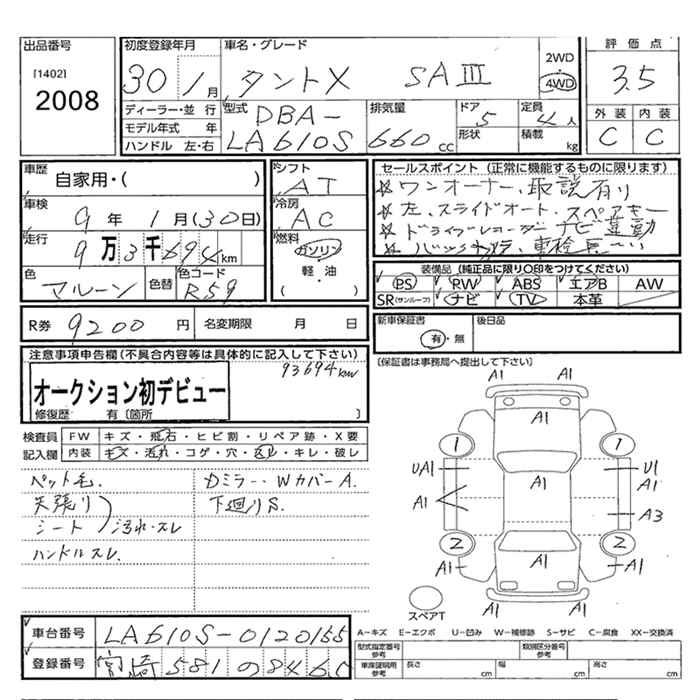 出品番号
[1402]
2008
初度登録年月
30 1月
車名・グレード
タントX SAⅢ
2WD
4WD
評価点
3.5
外装 内装
C C
ディーラー・並 行
モデル年式 年
ハンドル 左・右
型式
DBA-
LA610S
排気量
660cc
ドア
5
形状
定員
4人
積載 kg
車歴
自家用・( )
車検
9年 1月(30日)
走行
9万3千694km
色
マルーン
色替
色コード
R59
シフト
AT
冷房
AC
燃料
ガソリン
軽・油
( )
セールスポイント (正常に機能するものに限ります)
☆ワンオーナー、取説有り
☆左、スライドオート、スペアキー
☆ドライブレコーダー ナビ連動
☆バックカメラ、車検長~い
装備品 (純正品に限り○印をつけてください)
PS PW ABS エアB AW
SR(サンルーフ) ナビ TV 本革
R券 9200円
名変期限 月 日
新車保証書
有・無
後日品
[保証書は事務局へ提出して下さい]
注意事項申告欄(不具合内容等は具体的に記入して下さい)
93694km
オークション初デビュー
修復歴 有[箇所 ]
検査員 FW キズ・飛石・ヒビ割・リペア跡・X要
記入欄 内装 キズ・汚れ・コゲ・穴・灰皿・キレ・破レ
ペット毛.
天張り
シート
汚れ・スレ
ハンドルスレ.
Dミラー・WカバーA.
下廻りS.
A1 A1
A1
1 1
UA1 A1 U1
A1 A1
A3
2 2
A1 A1 A1
A1 A1
スペアT
A-キズ E-エクボ U-凹み W-補修跡 S-サビ C-腐食 XX-交換済
車台番号 LA610S-0120155
登録番号 宮崎581の8465
型式指定番号
参考
類別区分番号
参考
車庫証明用
参考
長さ cm
幅 cm
高さ cm